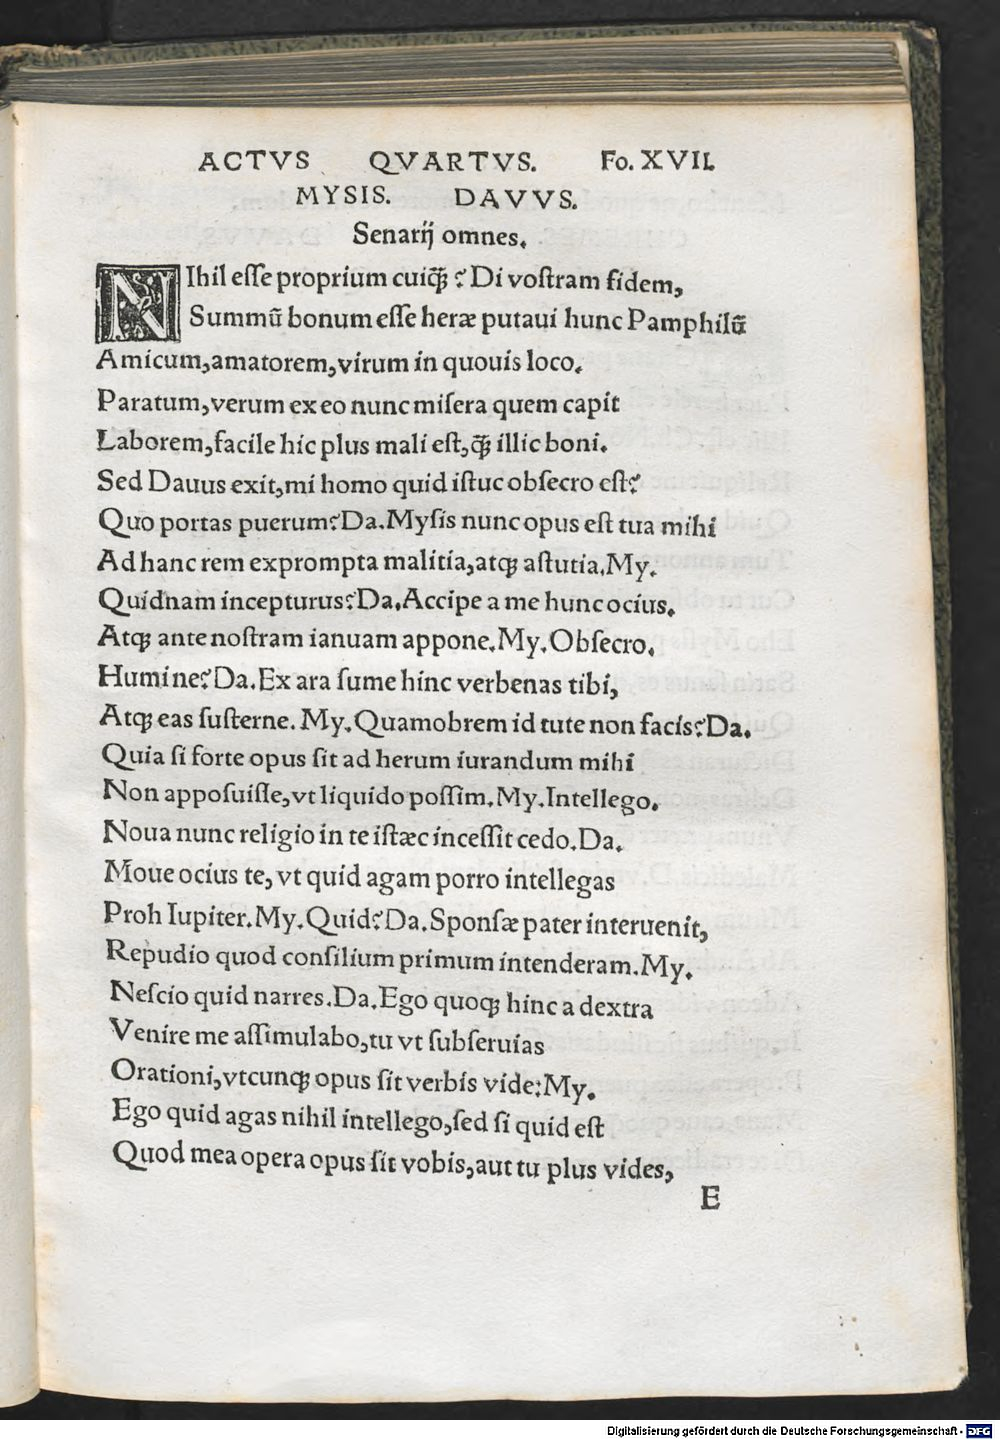 ACTVS QVARTVS. Fo. XVII.
MYSIS. DAVVS.
Senarij omnes.
NIhil eſſe proprium cuiq̃ꝫ? Di voſtram fidem,
Summū bonum eſſe heræ putaui hunc Pamphilū
Amicum, amatorem, virum in quouis loco.
Paratum, verum ex eo nunc miſera quem capit
Laborem, facile hic plus mali eſt, q̃ꝫ illic boni.
Sed Dauus exit, mi homo quid iſtuc obſecro eſt?
Quo portas puerum? Da. Myſis nunc opus eſt tua mihi
Ad hanc rem exprompta malitia, atqꝫ aſtutia. My.
Quidnam incepturus? Da. Accipe a me hunc ocius.
Atqꝫ ante noſtram ianuam appone. My. Obſecro.
Humi ne? Da. Ex ara ſume hinc verbenas tibi,
Atqꝫ eas ſuſterne. My. Quamobrem id tute non facis? Da.
Quia ſi forte opus ſit ad herum iurandum mihi
Non appoſuiſſe, vt liquido poſſim. My. Intellego.
Noua nunc religio in te iſtæc inceſſit cedo. Da.
Moue ocius te, vt quid agam porro intellegas
Proh Iupiter. My. Quid? Da. Sponſæ pater interuenit,
Repudio quod conſilium primum intenderam. My.
Neſcio quid narres. Da. Ego quoqꝫ hinc a dextra
Venire me aſſimulabo, tu vt ſubſeruias
Orationi, vtcunqꝫ opus ſit verbis vide: My.
Ego quid agas nihil intellego, ſed ſi quid eſt
Quod mea opera opus ſit vobis, aut tu plus vides,
E
Digitalisierung gefördert durch die Deutsche Forschungsgemeinschaft - DFG